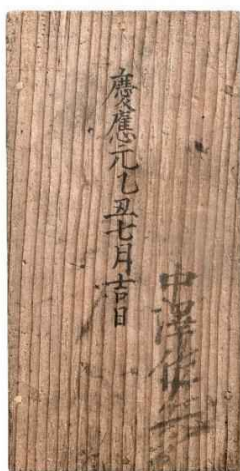 慶應元乙丑七月吉日
中澤